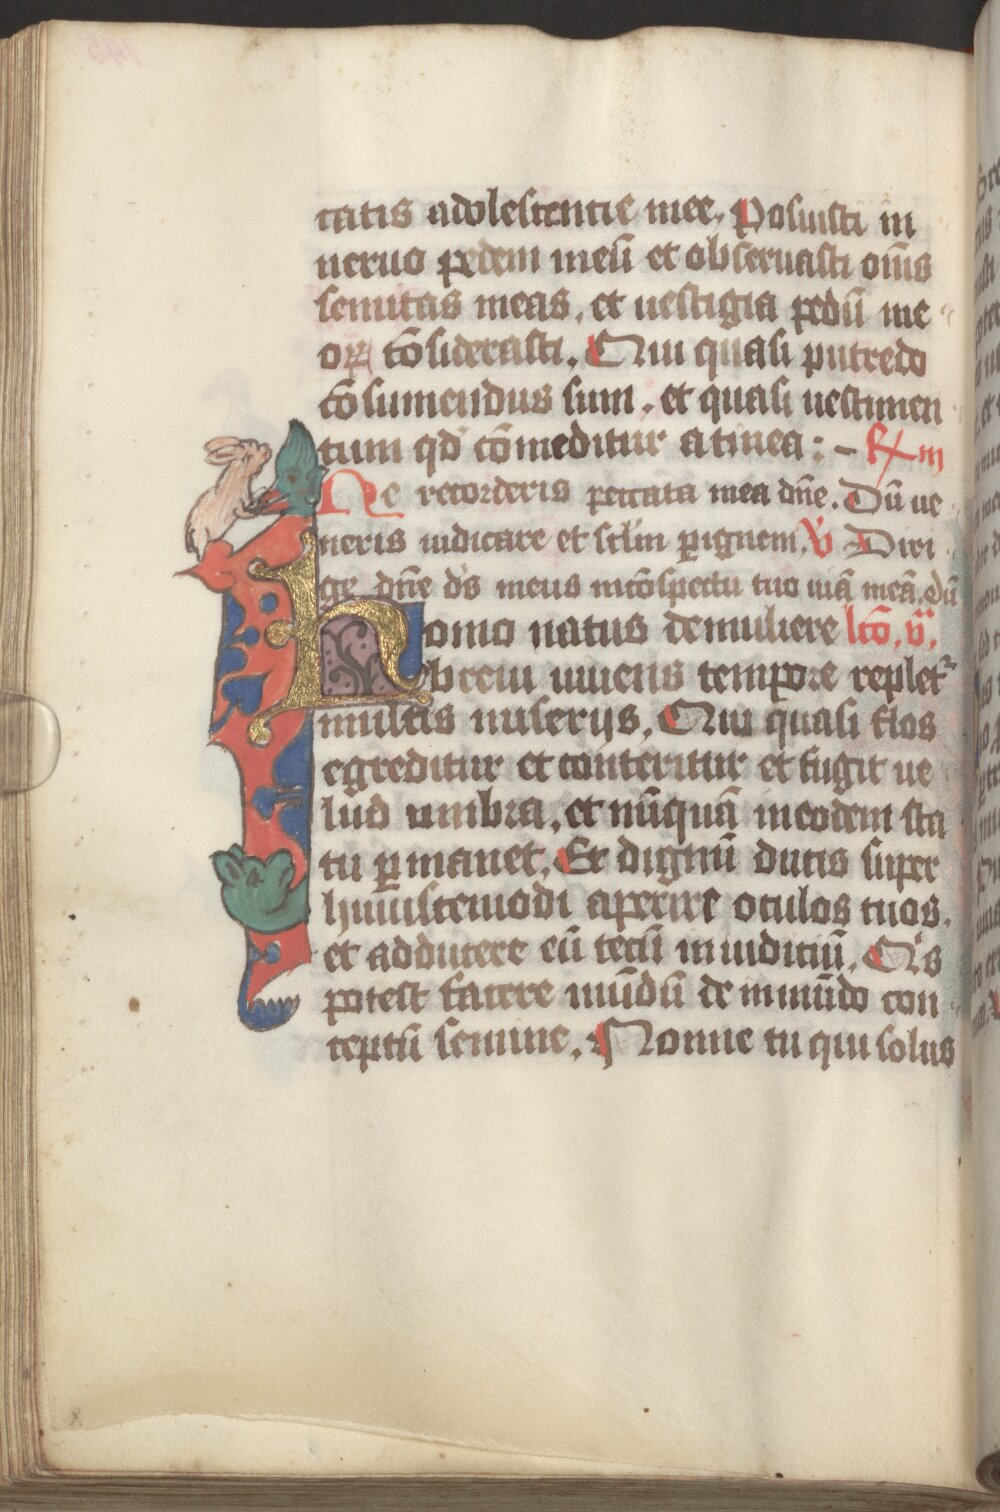 tatis adolescentie mee. Posuisti in
neruo pedem meū et obseruasti om̄s
semitas meas. et uestigia pedū me
oꝝ ꝯ̄siderasti. Qui quasi putredo
cōsumendus sum. et quasi uestimen
tum qd̕ cōmeditur a tinea: –
Ne recorderis peccata mea dn̄e. Dū ue
neris iudicare et sc̄lm ꝑ ignem. V̕ Diri
ge dn̄e ds̄ meus in cōspectu tuo uiā meā. dū
Homo natus de muliere lc̄o. v.
breui uiuens tempore replet᷑
multis miserijs. Qui quasi flos
egreditur et conteritur et fugit ue
lud umbra. et nūquā in eodem sta
tu ꝑmanet. Et dignū ducis super
huiuscemodi aperire oculos tuos.
et adducere eū tecū in iudiciū. Qis
potest facere mūdū de inmūdo con
ceptū semine. Nonne tu qui solus